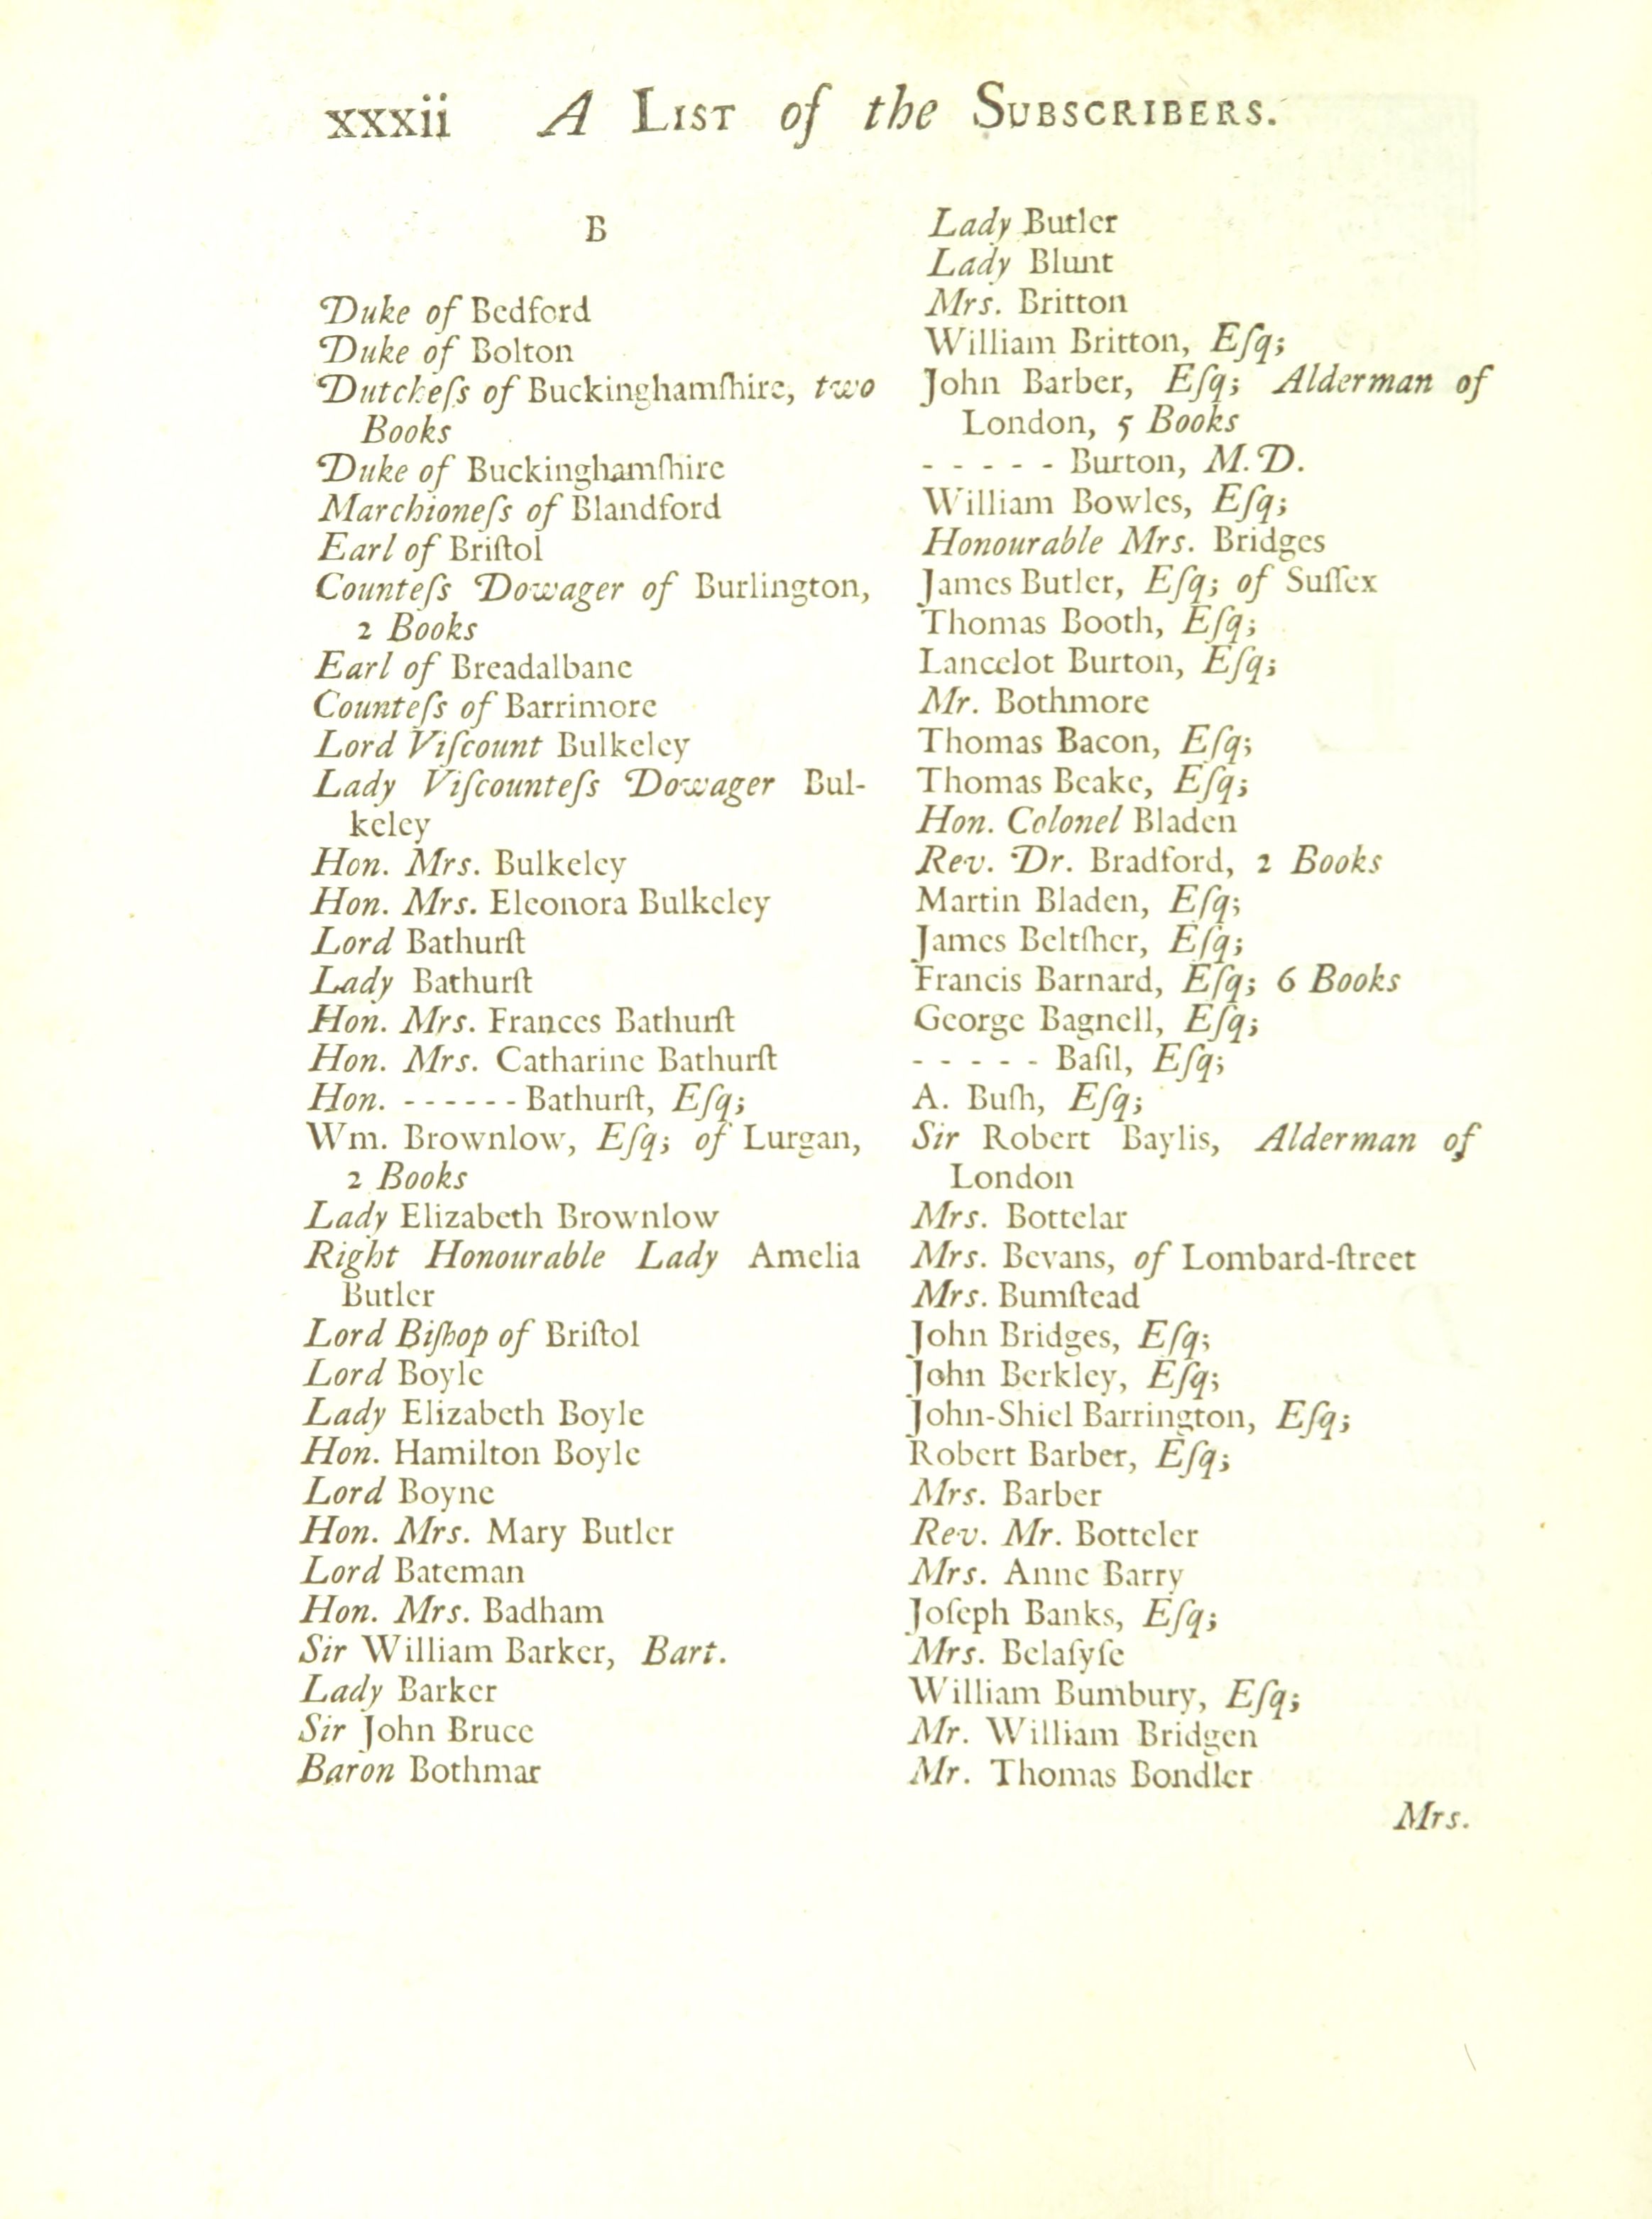 xxxii A LIST of the SUBSCRIBERS.
B
Duke of Bedford
Duke of Bolton
Dutcheſs of Buckinghamſhire, two
Books
Duke of Buckinghamſhire
Marchioneſs of Blandford
Earl of Briſtol
Counteſs Dowager of Burlington,
2 Books
Earl of Breadalbane
Counteſs of Barrimore
Lord Viſcount Bulkeley
Lady Viſcounteſs Dowager Bul-
keley
Hon. Mrs. Bulkeley
Hon. Mrs. Eleonora Bulkeley
Lord Bathurſt
Lady Bathurſt
Hon. Mrs. Frances Bathurſt
Hon. Mrs. Catharine Bathurſt
Hon. ------ Bathurſt, Eſq;
Wm. Brownlow, Eſq; of Lurgan,
2 Books
Lady Elizabeth Brownlow
Right Honourable Lady Amelia
Butler
Lord Biſhop of Briſtol
Lord Boyle
Lady Elizabeth Boyle
Hon. Hamilton Boyle
Lord Boyne
Hon. Mrs. Mary Butler
Lord Bateman
Hon. Mrs. Badham
Sir William Barker, Bart.
Lady Barker
Sir John Bruce
Baron Bothmar
Lady Butler
Lady Blunt
Mrs. Britton
William Britton, Eſq;
John Barber, Eſq; Alderman of
London, 5 Books
- - - - - Burton, M.D.
William Bowles, Eſq;
Honourable Mrs. Bridges
James Butler, Eſq; of Suſſex
Thomas Booth, Eſq;
Lancelot Burton, Eſq;
Mr. Bothmore
Thomas Bacon, Eſq;
Thomas Beake, Eſq;
Hon. Colonel Bladen
Rev. Dr. Bradford, 2 Books
Martin Bladen, Eſq;
James Beltſher, Eſq;
Francis Barnard, Eſq; 6 Books
George Bagnell, Eſq;
- - - - - Baſil, Eſq;
A. Buſh, Eſq;
Sir Robert Baylis, Alderman of
London
Mrs. Bottelar
Mrs. Bevans, of Lombard-ſtreet
Mrs. Bumſtead
John Bridges, Eſq;
John Berkley, Eſq;
John-Shiel Barrington, Eſq;
Robert Barber, Eſq;
Mrs. Barber
Rev. Mr. Botteler
Mrs. Anne Barry
Joſeph Banks, Eſq;
Mrs. Belaſyſe
William Bumbury, Eſq;
Mr. William Bridgen
Mr. Thomas Bondler
Mrs.